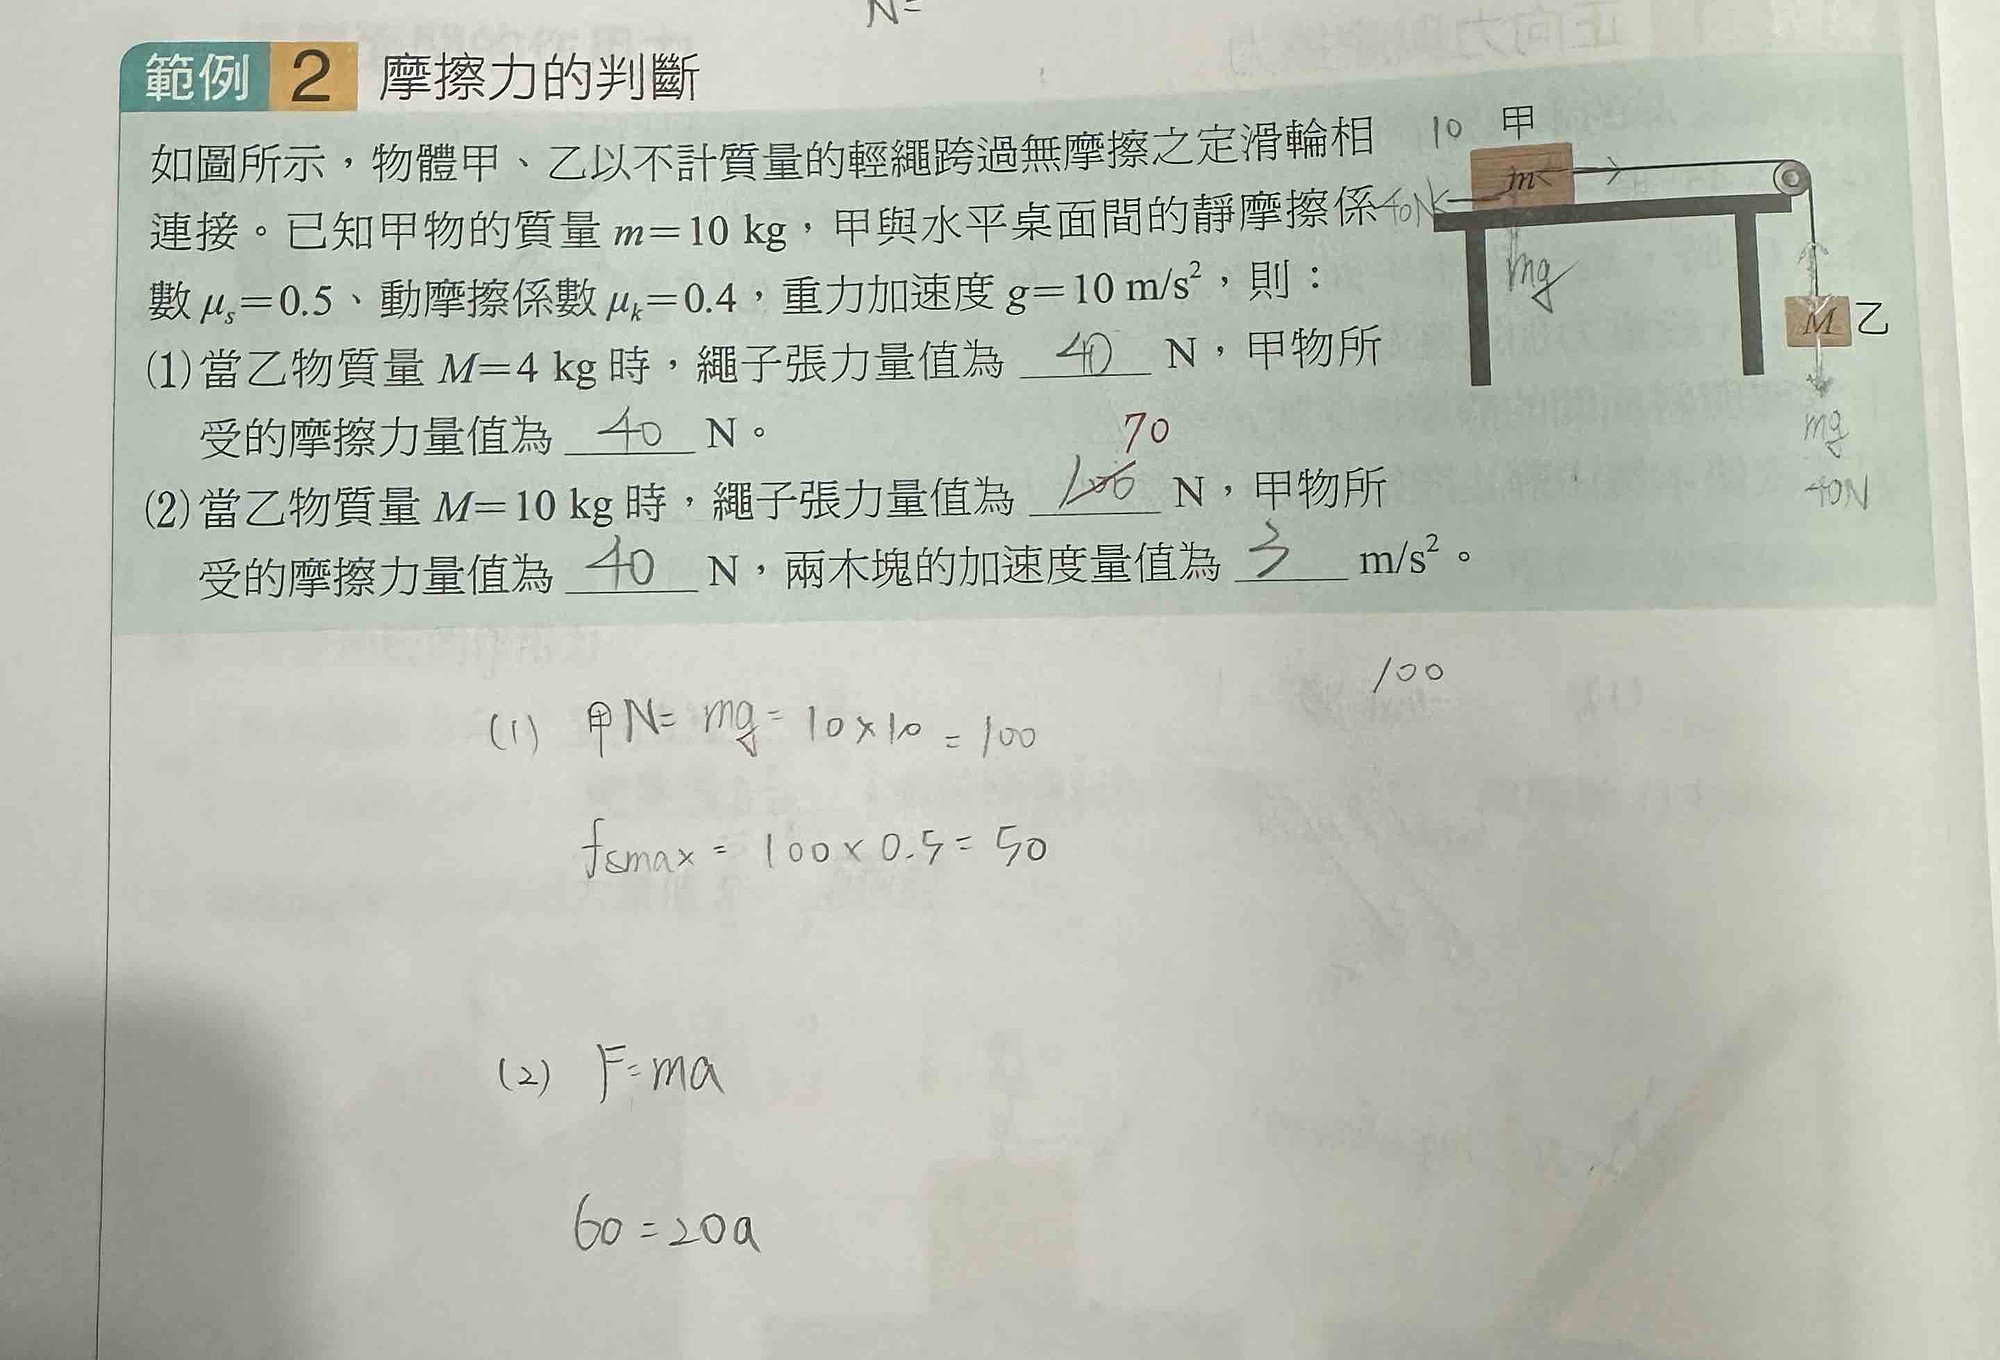 N=
範例 2 摩擦力的判斷
如圖所示，物體甲、乙以不計質量的輕繩跨過無摩擦之定滑輪相
連接。已知甲物的質量 m=10 kg，甲與水平桌面間的靜摩擦係
數 μs=0.5、動摩擦係數 μk=0.4，重力加速度 g=10 m/s²，則：
(1)當乙物質量 M=4 kg 時，繩子張力量值為 40 N，甲物所
受的摩擦力量值為 40 N。
70
(2)當乙物質量 M=10 kg 時，繩子張力量值為 100 N，甲物所
受的摩擦力量值為 40 N，兩木塊的加速度量值為 3 m/s²。
10 甲
m
40N
mg
M 乙
mg
40N
100
(1) 甲N= mg= 10×10 = 100
fsmax = 100×0.5= 50
(2) F=ma
60=20a